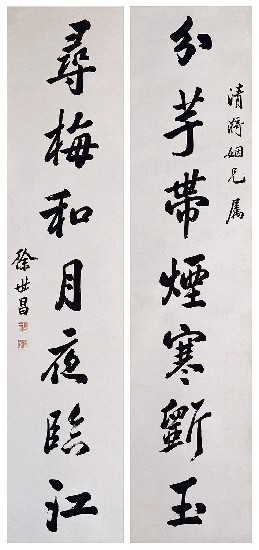 清漪姻兄屬
分芋帶煙寒斲玉
尋梅和月夜臨江
徐世昌